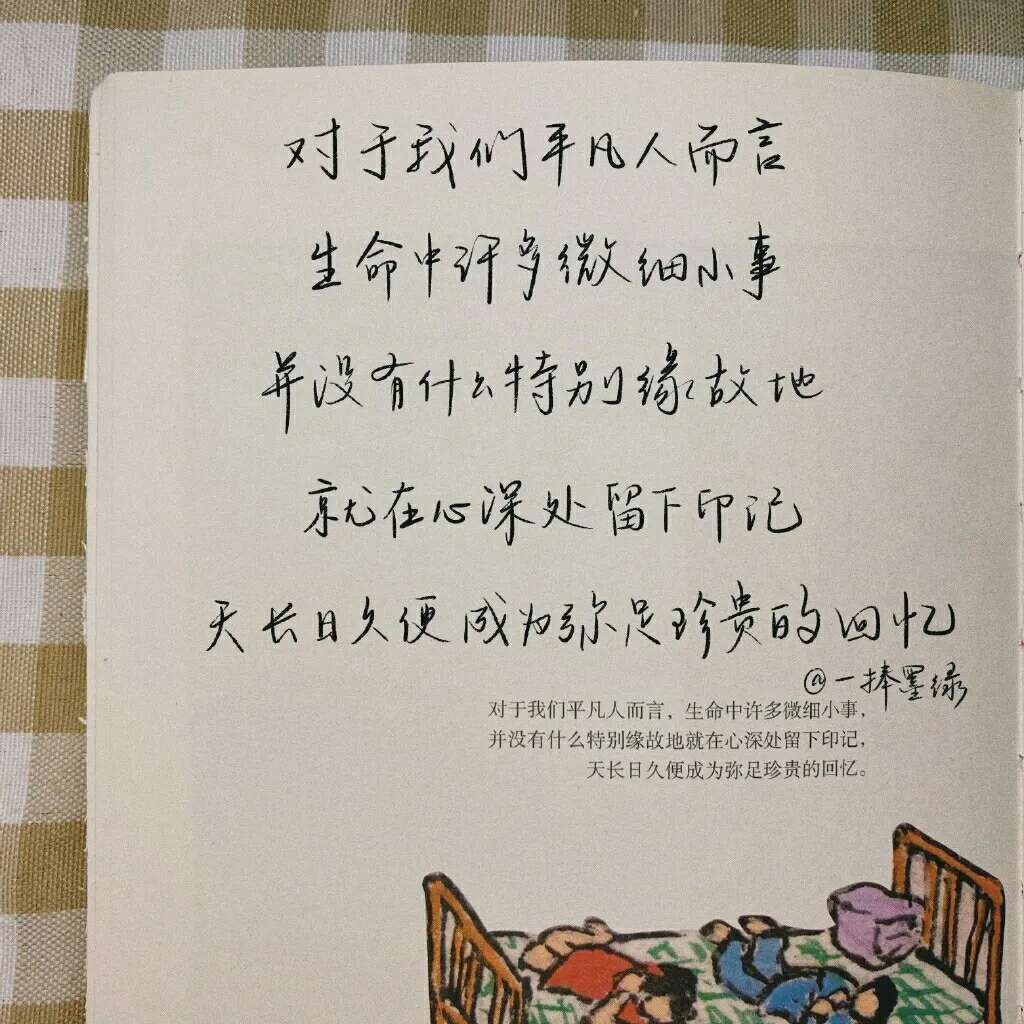 对于我们平凡人而言
生命中许多微细小事
并没有什么特别缘故地
就在心深处留下印记
天长日久便成为弥足珍贵的回忆
@一捧墨绿
对于我们平凡人而言，生命中许多微细小事，
并没有什么特别缘故地就在心深处留下印记，
天长日久便成为弥足珍贵的回忆。